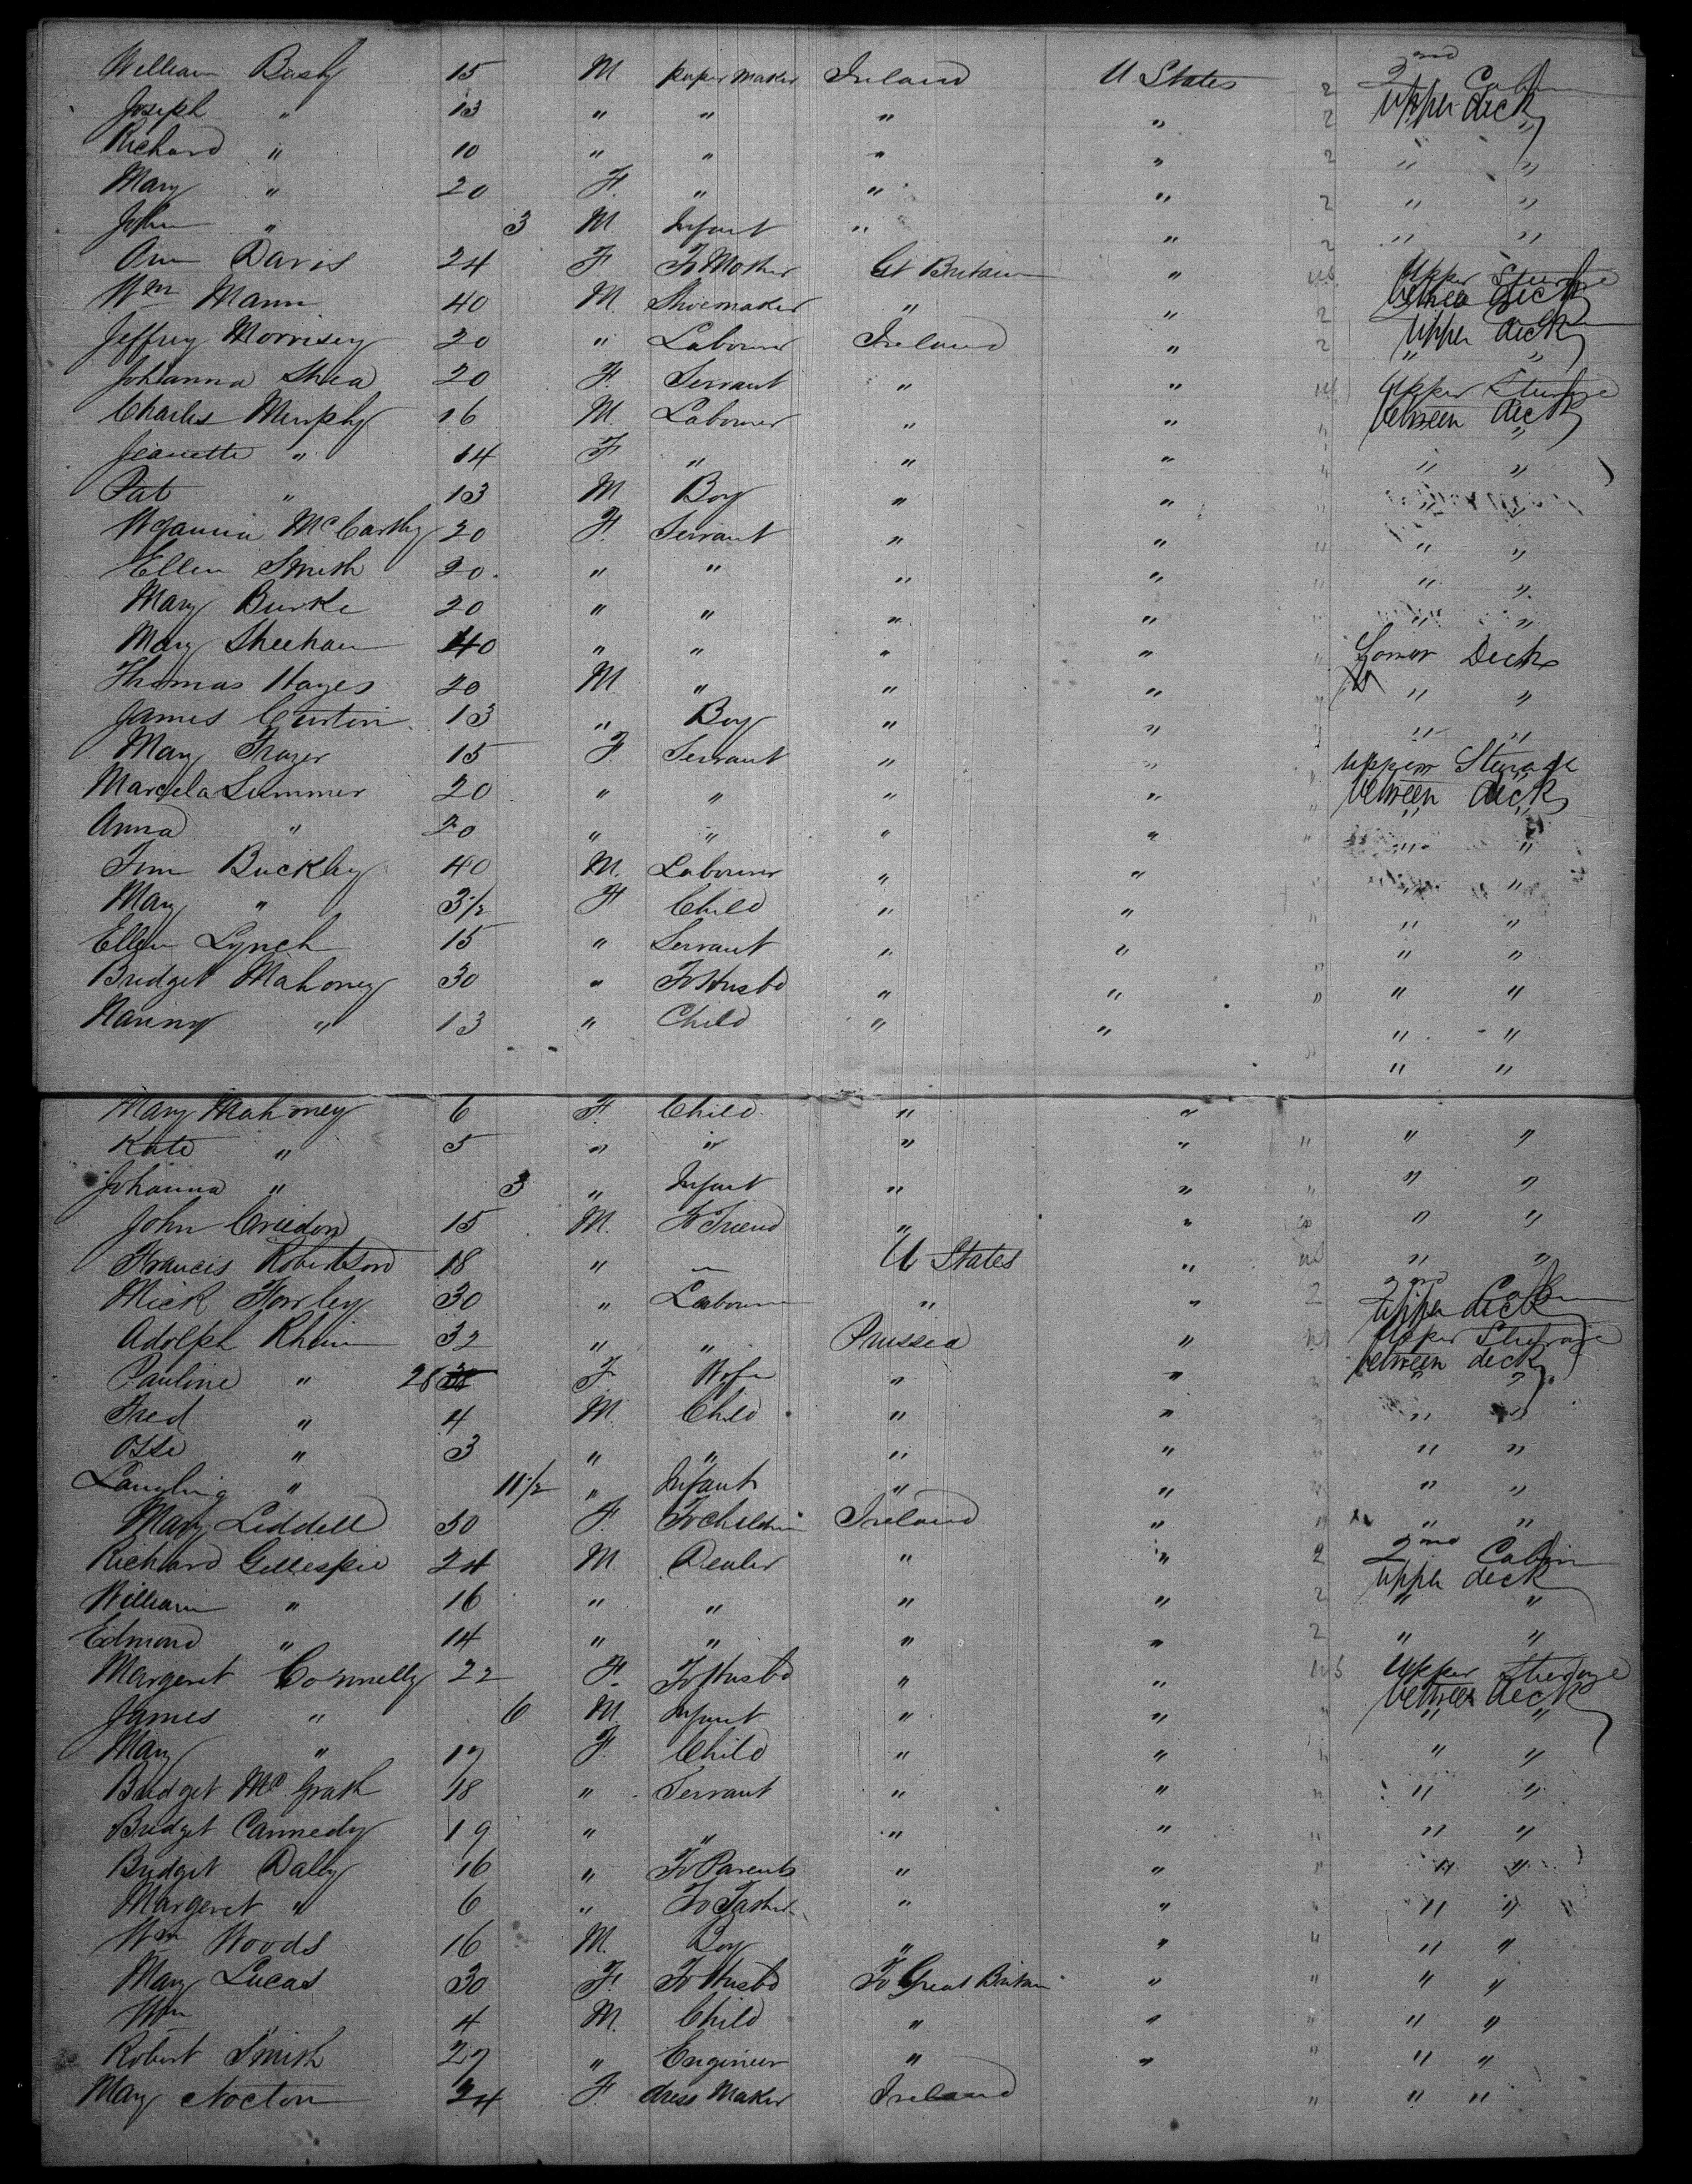 William Busby 15 M. paper maker Ireland U States 2 2nd Cabin
Joseph " 13 " " " " 2 Upper deck
Richard " 10 " " " " 2 " "
Mary " 20 F. " " " 2 " "
John " 3 M. Infant " " 2 " "
Ann Davis 24 F To Mother Gt Britain " Upper Steerage
Wm Mann 40 M. Shoemaker " " 2 between deck
Jeffrey Morrisey 20 " Labourer Ireland " 2 Upper deck
Johanna Shea 20 F. Servant " " Upper Steerage
Charles Murphy 16 M. Labourer " " " between deck
Jeanette " 14 F " " " " " "
Pat " 13 M Boy " " " " "
McCarthy 20 F. Servant " " " " "
Ellen Smith 20. " " " " " " "
Mary Burke 20 " " " " " " "
Mary Sheehan 40 " " " " " Lower Deck
Thomas Hayes 20 M " " " " " "
James Curtin 13 " Boy " " " " "
Mary Frazer 15 F. Servant " " " upper Sterage
Marcela Summer 20 " " " " " between deck
Anna " 20 " " " " " " "
Tim Buckley 40 M. Labourer " " " " "
Mary " 3 1/2 F Child " " " " "
Ellen Lynch 15 " Servant " " " "
Bridget Mahoney 30 " To Husbd " " " " "
" 13 " Child " " " "
" "
Mary Mahoney 6 F. Child " "
Kate " 5 " " " " " " "
Johanna " 3 " Infant " " " " "
John Creedon 15 M. To Friend " " " "
Francis Robertson 18 " " U States " " "
Mick Fowley 30 " Labourer " " 2 2nd Cabin
Upper deck
Adolph Rhein 32 " " Prussia " Upper Sterage
between deck
Pauline " 26 F Wife " " " "
Fred " 4 M. Child " " " " "
" 3 " " " " " " "
" 11 1/2 " Infant " " " " "
Mary Liddell 30 F. To Children Ireland " " " "
Richard Gillespie 24 M. Dealer " " 2 2nd Cabin
upper deck
William " 16 " " " " 2 " "
Edmond " 14 " " " " 2 " "
Margeret Connelly 22 F. To Husbd " " Upper Sterage
between deck
James " 6 M. Infant " " " " "
Mary " 17 F. Child " " " " "
Bridget Mc Grath 18 " Servant " " " " "
Bridget Cannedy 19 " " " " " " "
Bridget Dally 16 " To Parents " " " " "
Margeret " 6 " To Father " " " " "
Wm Woods 16 M. Boy " " " " "
Mary Lucas 30 F. To Husbd To Great Britain " " " "
Wm " 4 M. Child " " " " "
Robert Smith 27 " Engineer " " " " "
Mary Nocton 24 F. dress Maker Ireland " " "